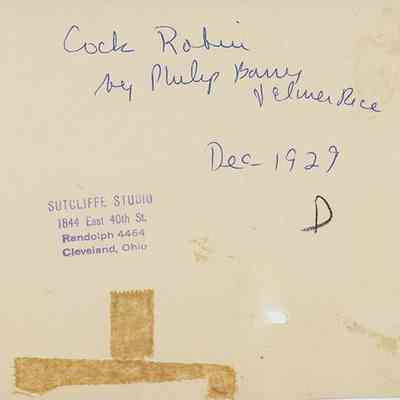 Cock Robin
by Philip Barry
& Elmer Rice
Dec - 1929
D
SUTCLIFFE STUDIO
1844 East 40th St.
Randolph 4464
Cleveland, Ohio